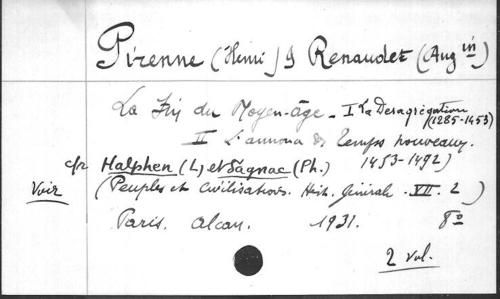 Pirenne (Henri) & Renaudet (Augin)
La Fin du Moyen-âge - I La Desagrégation
(1285-1453)
II L'annonce des Temps nouveaux.
1453-1492)
c/r Halphen (L) et Sagnac (Ph.)
Voir (Peuples et Civilisations. Hist. Générale. VII. 2)
Paris. Alcan. 1931. 8º
2 vol.